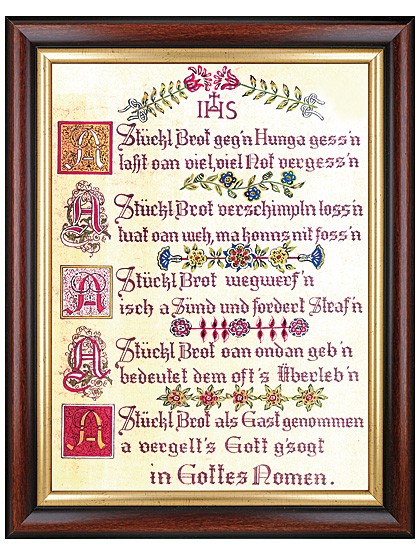 IHS
A Stückl Brot geg'n Hunga gess'n
laßt oan viel, viel Not vergess'n
A Stückl Brot verschimpln loss'n
tuat oan weh, ma konns nit foss'n
A Stückl Brot wegwerf'n
isch a Sünd und fordert Straf'n
A Stückl Brot oan ondan geb'n
bedeutet dem oft's Überleb'n
A Stückl Brot als Gast genommen
a vergelt's Gott g'sogt
in Gottes Nomen.